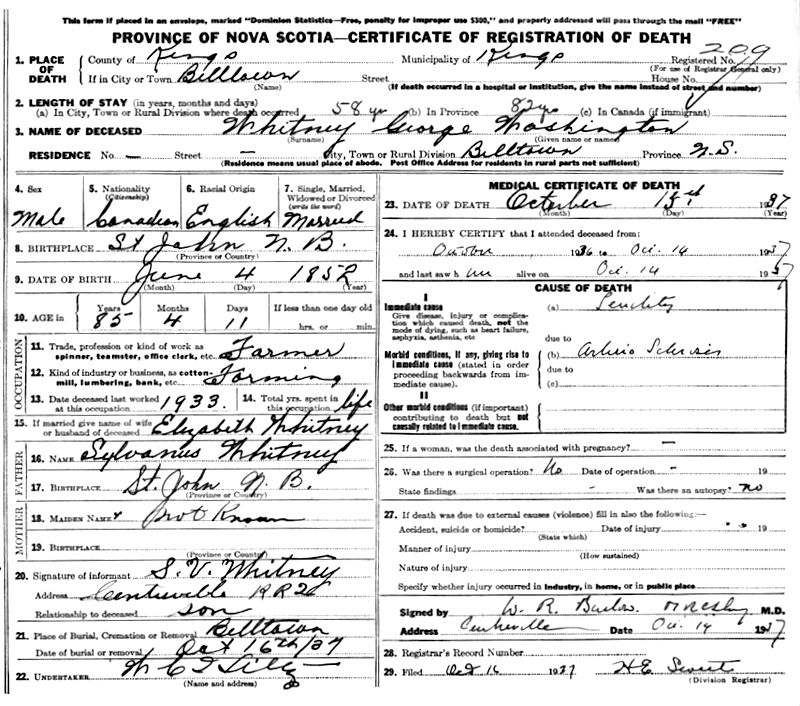 This form if placed in an envelope, marked "Dominion Statistics—Free, penalty for improper use $300," and properly addressed will pass through the mail "FREE"
PROVINCE OF NOVA SCOTIA—CERTIFICATE OF REGISTRATION OF DEATH
1. PLACE OF DEATH County of Kings Municipality of Kings Registered No. 209
(For use of Registrar General only)
If in City or Town Billtown Street House No.
(Name) (If death occurred in a hospital or institution, give the name instead of street and number)
2. LENGTH OF STAY (in years, months and days)
(a) In City, Town or Rural Division where death occurred 58 yrs (b) In Province 82 yrs (c) In Canada (if immigrant)
3. NAME OF DECEASED Whitney George Washington
(Surname) (Given name or names)
RESIDENCE No. — Street — City, Town or Rural Division Billtown Province N.S.
(Residence means usual place of abode. Post Office Address for residents in rural parts not sufficient)
4. Sex 5. Nationality (Citizenship) 6. Racial Origin 7. Single, Married, Widowed or Divorced (write the word)
Male Canadian English Married
8. BIRTHPLACE St John N. B.
(Province or Country)
9. DATE OF BIRTH June 4 1852
(Month) (Day) (Year)
10. AGE in Years Months Days If less than one day old
85 4 11 hrs. or min.
OCCUPATION
11. Trade, profession or kind of work as spinner, teamster, office clerk, etc. Farmer
12. Kind of industry or business, as cotton-mill, lumbering, bank, etc. Farming
13. Date deceased last worked at this occupation 1933. 14. Total yrs. spent in this occupation life
15. If married give name of wife or husband of deceased Elizabeth Whitney
FATHER
16. NAME Sylvanus Whitney
17. BIRTHPLACE St. John N. B.
(Province or Country)
MOTHER
18. MAIDEN NAME not Known
19. BIRTHPLACE
(Province or Country)
20. Signature of informant S. V. Whitney
Address Centreville RR 2
Relationship to deceased son
21. Place of Burial, Cremation or Removal Billtown
Date of burial or removal Oct 16th/37
22. UNDERTAKER
(Name and address)
MEDICAL CERTIFICATE OF DEATH
23. DATE OF DEATH October 15 1937
(Month) (Day) (Year)
24. I HEREBY CERTIFY that I attended deceased from:
October 1936 to Oct. 14 1937
and last saw h im alive on Oct. 14 1937
CAUSE OF DEATH
I
Immediate cause (a) Senility
Give disease, injury or complication which caused death, not the mode of dying, such as heart failure, asphyxia, asthenia, etc
due to
Morbid conditions, if any, giving rise to immediate cause (stated in order proceeding backwards from immediate cause). (b) Arterio Sclerosis
due to
(c)
II
Other morbid conditions (if important) contributing to death but not causally related to immediate cause.
25. If a woman, was the death associated with pregnancy? —
26. Was there a surgical operation? No Date of operation - 19
State findings - Was there an autopsy? no
27. If death was due to external causes (violence) fill in also the following:—
Accident, suicide or homicide? Date of injury 19
(State which)
Manner of injury
(How sustained)
Nature of injury
Specify whether injury occurred in industry, in home, or in public place
Signed by W. R. M.D.
Address Centreville Date Oct. 14 1937
28. Registrar's Record Number
29. Filed Oct 16 1937 H E
(Division Registrar)